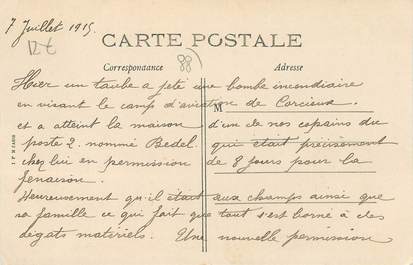 7 Juillet 1915.
12 €
88
CARTE POSTALE
Correspondance
Adresse
Hier un taube a jeté une bombe incendiaire
en visant le camp d'aviation de Corcieux
M
et a atteint la maison d'un de nos copains du
poste 2. nommé Bedel. qui était précisement
chez lui en permission de 8 jours pour la
fenaison.
Heureusement qu'il était aux champs ainsi que
sa famille ce qui fait que tout s'est borné à des
dégats matériels. Une nouvelle permission